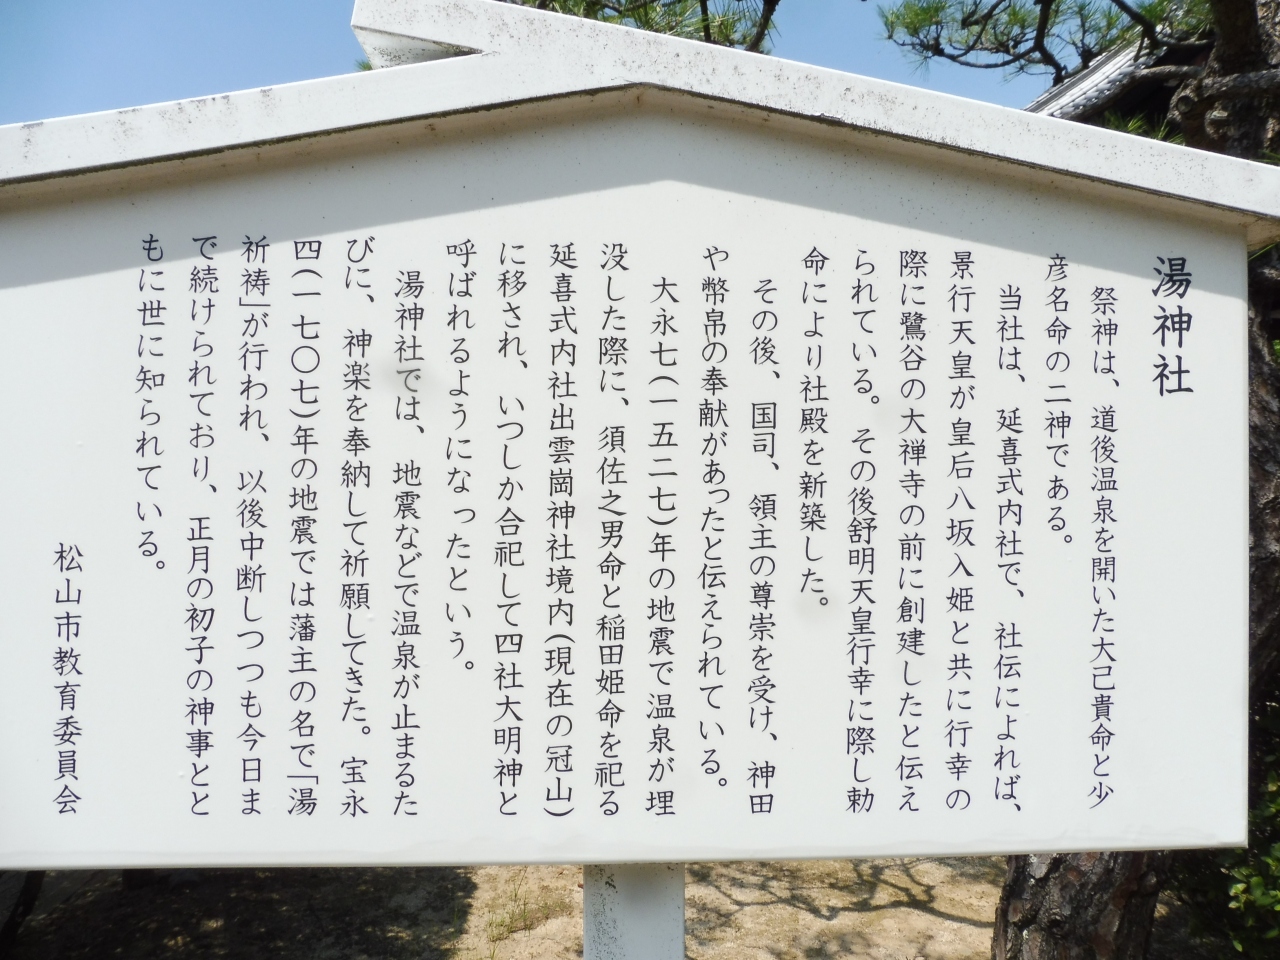 湯神社
祭神は、道後温泉を開いた大己貴命と少
彦名命の二神である。
当社は、延喜式内社で、社伝によれば、
景行天皇が皇后八坂入姫と共に行幸の
際に鷺谷の大禅寺の前に創建したと伝え
られている。その後舒明天皇行幸に際し勅
命により社殿を新築した。
その後、国司、領主の尊崇を受け、神田
や幣帛の奉献があったと伝えられている。
大永七(一五二七)年の地震で温泉が埋
没した際に、須佐之男命と稲田姫命を祀る
延喜式内社出雲崗神社境内(現在の冠山)
に移され、いつしか合祀して四社大明神と
呼ばれるようになったという。
湯神社では、地震などで温泉が止まるた
びに、神楽を奉納して祈願してきた。宝永
四(一七〇七)年の地震では藩主の名で「湯
祈祷」が行われ、以後中断しつつも今日ま
で続けられており、正月の初子の神事とと
もに世に知られている。
松山市教育委員会